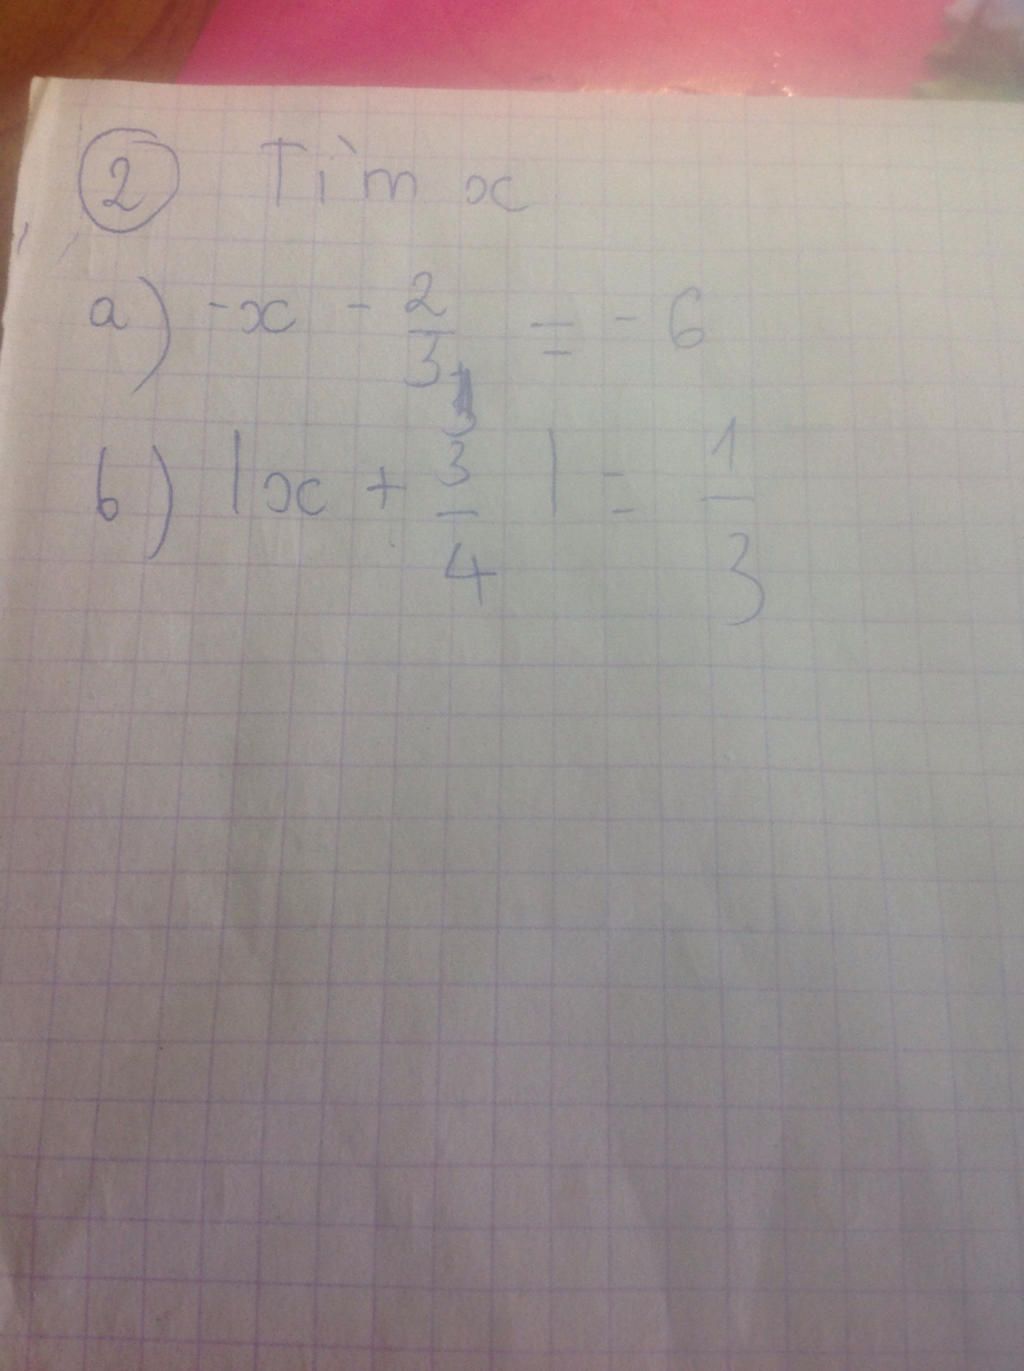 2 Tìm x
a) -x - 2/3 = -6
b) |x + 3/4| = 1/3